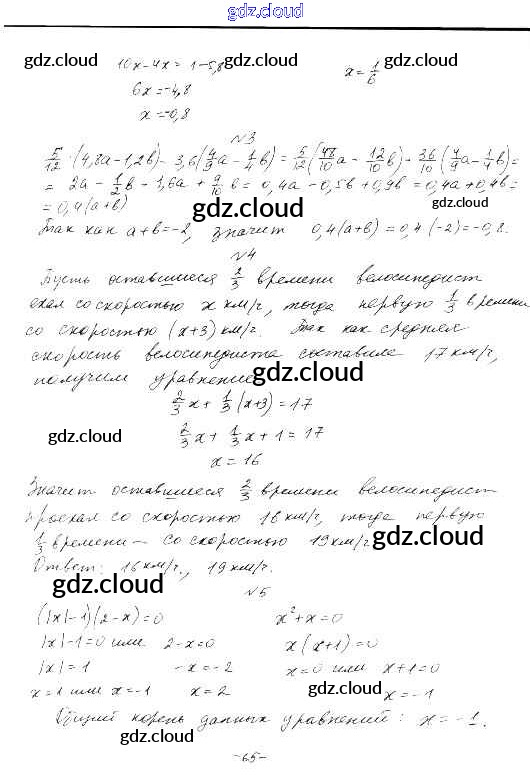 gdz.cloud
gdz.cloud 10x-4x = 1-5,8 gdz.cloud x = 1/6 gdz.cloud
6x = -4,8
x = -0,8
N3
5/12 · (4,8a - 1,2b) - 3,6(4/9 a - 1/4 b) = 5/12 (48/10 a - 12/10 b) - 36/10 (4/9 a - 1/4 b) =
= 2a - 1/2 b - 1,6a + 9/10 b = 0,4a - 0,5b + 0,9b = 0,4a + 0,4b =
= 0,4(a+b) gdz.cloud gdz.cloud
Так как a+b=-2, значит 0,4(a+b) = 0,4·(-2) = -0,8.
N4
Пусть оставшиеся 2/3 времени велосипедист
ехал со скоростью x км/ч, тогда первую 1/3 времени
со скоростью (x+3) км/ч. Так как средняя
скорость велосипедиста составила 17 км/ч,
получим уравнение gdz.cloud
2/3 x + 1/3 (x+3) = 17
gdz.cloud 2/3 x + 1/3 x + 1 = 17 gdz.cloud
x = 16
Значит оставшиеся 2/3 времени велосипедист
проехал со скоростью 16 км/ч, тогда первую
1/3 времени - со скоростью 19 км/ч gdz.cloud
Ответ: 16 км/ч., 19 км/ч.
gdz.cloud N5
(|x|-1)(2-x)=0 x²+x=0
|x|-1=0 или 2-x=0 x(x+1)=0
|x|=1 -x=-2 x=0 или x+1=0
x=1 или x=-1 x=2 gdz.cloud x=-1
Общий корень данных уравнений: x=-1.
gdz.cloud
-65-